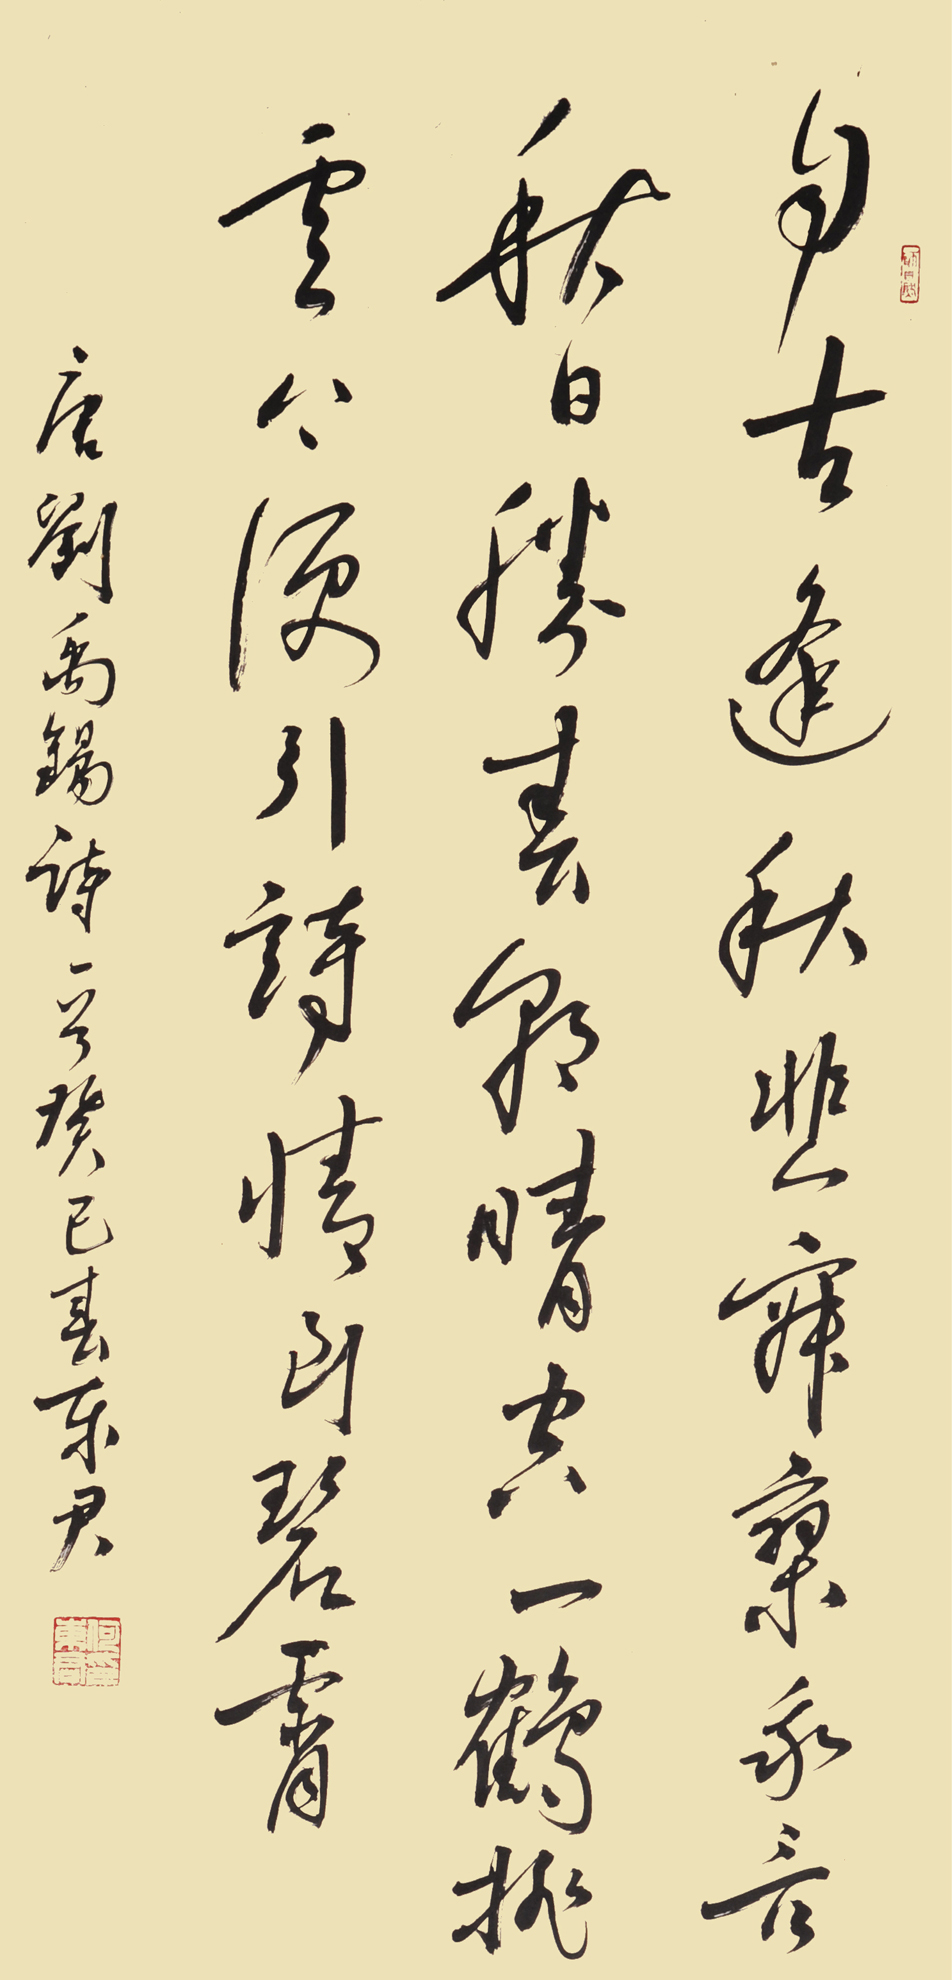 自古逢秋悲寂寥我言
秋日勝春朝晴空一鶴排
雲上便引詩情到碧霄
唐劉禹錫詩一首癸巳春東君